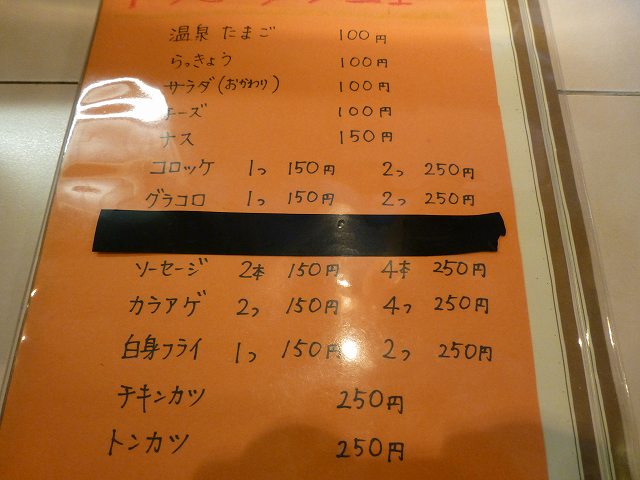 温泉たまご 100円
らっきょう 100円
サラダ(おかわり) 100円
チーズ 100円
ナス 150円
コロッケ 1つ 150円 2つ 250円
グラコロ 1つ 150円 2つ 250円
ソーセージ 2本 150円 4本 250円
カラアゲ 2つ 150円 4つ 250円
白身フライ 1つ 150円 2つ 250円
チキンカツ 250円
トンカツ 250円